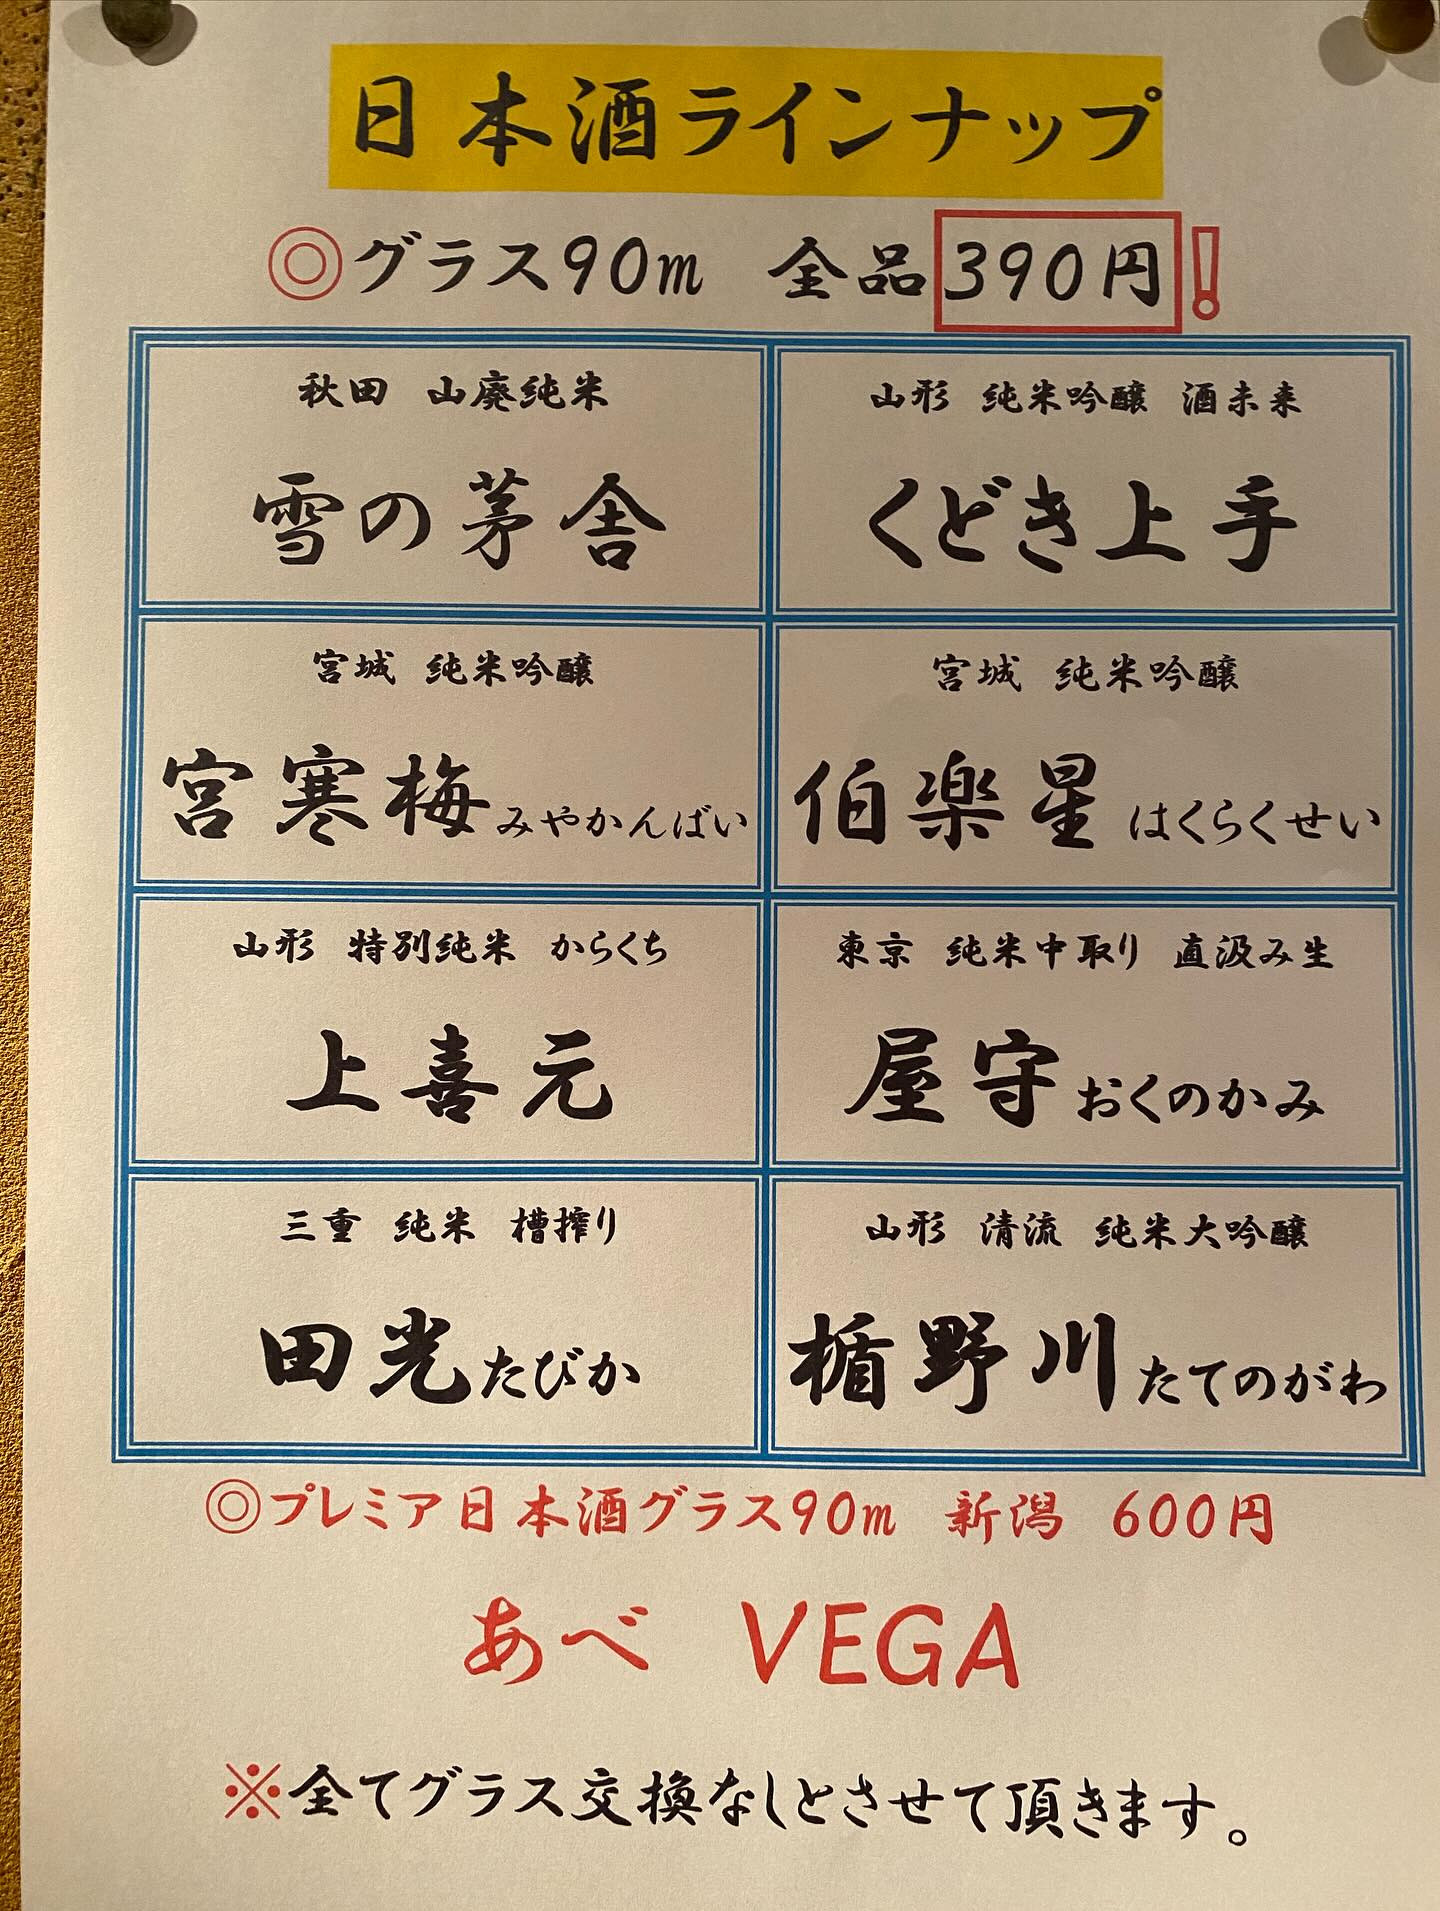 日本酒ラインナップ
◎グラス90m 全品390円!
秋田 山廃純米
雪の茅舎
山形 純米吟醸 酒未来
くどき上手
宮城 純米吟醸
宮寒梅みやかんばい
宮城 純米吟醸
伯楽星はくらくせい
山形 特別純米 からくち
上喜元
東京 純米中取り 直汲み生
屋守おくのかみ
三重 純米 槽搾り
田光たびか
山形 清流 純米大吟醸
楯野川たてのがわ
◎プレミア日本酒グラス90m 新潟 600円
あべ VEGA
※全てグラス交換なしとさせて頂きます。